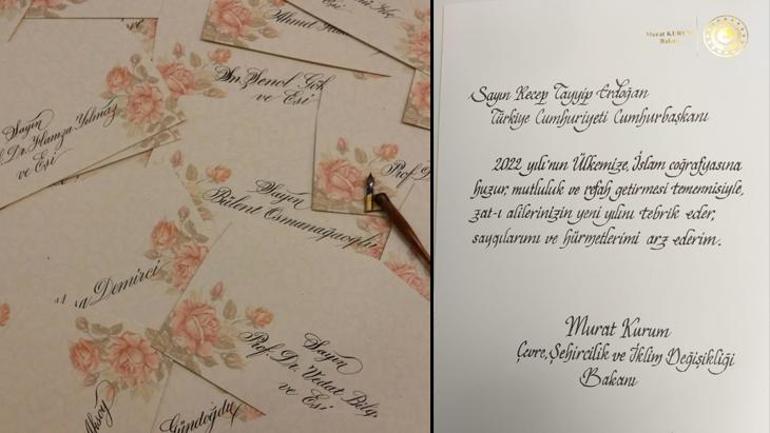 Sn. Şenol Gök
ve Eşi
Sayın
Dr. Hamza Yılmaz
ve Eşi
Ahmet
Prof. D
Sayın
Bülent Osmanağaoğlu
Demirci
Sayın
Prof. Dr. Vedat Bilg.
ve Eşi
Aksoy
Gündoğdu
Murat KURUM
Bakan
Sayın Recep Tayyip Erdoğan
Türkiye Cumhuriyeti Cumhurbaşkanı
2022 yılı'nın Ülkemize, İslam coğrafyasına
huzur, mutluluk ve refah getirmesi temennisiyle,
zat-ı alilerinizin yeni yılını tebrik eder,
saygılarımı ve hürmetlerimi arz ederim.
Murat Kurum
Çevre, Şehircilik ve İklim Değişikliği
Bakanı